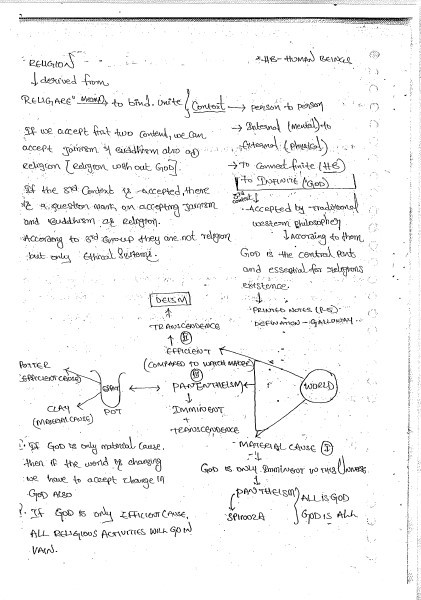 RELIGION
*HB - HUMAN BEINGS
↓ derived from
RELIGARE" Means → to bind. Unite { Context → person to person
→ Internal (Mental) to
External (Physical)
→ To Connect finite (HB)
to INFINITE (GOD)
If we accept first two content, we can
accept Jainism & Buddhism also as
religion [Religion without GOD].
If the 3rd Content is accepted, there
is a question mark on accepting Jainism
and Buddhism as Religion.
According to 3rd Group they are not religion
but only Ethical Systems.
3rd context
→ Accepted by Traditional
western Philosopher
↓ According to them,
GOD is the central Part
and essential for religions
existence.
↓
PRINTED NOTES
DEFINATION - GALLOWAY
DEISM
↑
TRANSCENDENCE
↑ II
EFFICIENT
(COMPARED TO WATCH MAKER)
III
PANENTHEISM
↓
IMMINENT
+
TRANSCENDENCE
WORLD
POTTER
(EFFICIENT CAUSE)
POT
CLAY
(MATERIAL CAUSE)
MATERIAL CAUSE I
↓
GOD IS ONLY IMMINENT IN THIS
↓
PANTHEISM } ALL IS GOD
SPINOZA GOD IS ALL
?. If GOD is only material cause,
then if the world is changing
we have to accept change in
GOD ALSO
?. If GOD IS ONLY EFFICIENT CAUSE,
ALL RELIGIOUS ACTIVITIES WILL GO IN
VAIN.